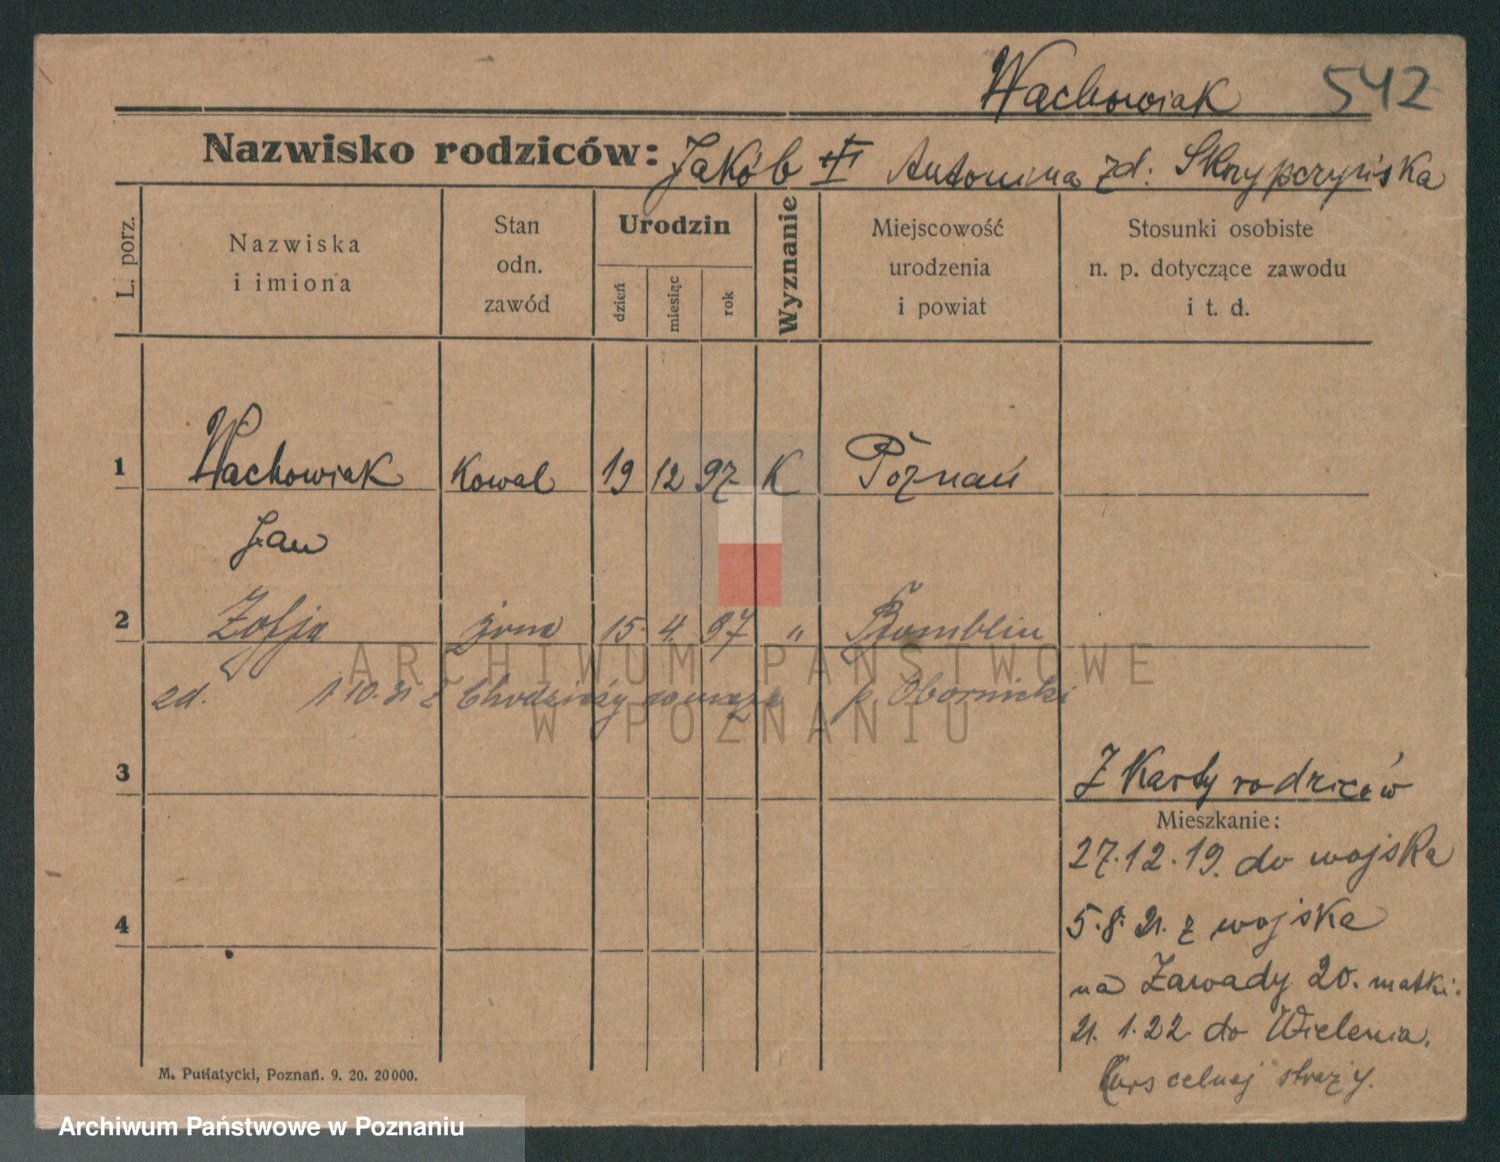 Wachowiak 542
Nazwisko rodziców: Jakób Antonina zd. Skrzypczyńska
L. porz.
Nazwiska
i imiona
Stan
odn.
zawód
Urodzin
dzień
miesiąc
rok
Wyznanie
Miejscowość
urodzenia
i powiat
Stosunki osobiste
n. p. dotyczące zawodu
i t. d.
1 Wachowiak kowal 19 12 97 K Poznań
Jan
2 Zofja żona 15 4 97 " Bomblin
zd. 1.10.21 z Chodzieży do męża p. Obornicki
3
Z karty rodziców
Mieszkanie:
27.12.19. do wojska
4
5.8.21. z wojska
na Zawady 20. matki.
21.1.22 do Wielenia.
Kurs celnej straży.
M. Putiatycki, Poznań. 9. 20. 20000.
ARCHIWUM PAŃSTWOWE
W POZNANIU
Archiwum Państwowe w Poznaniu